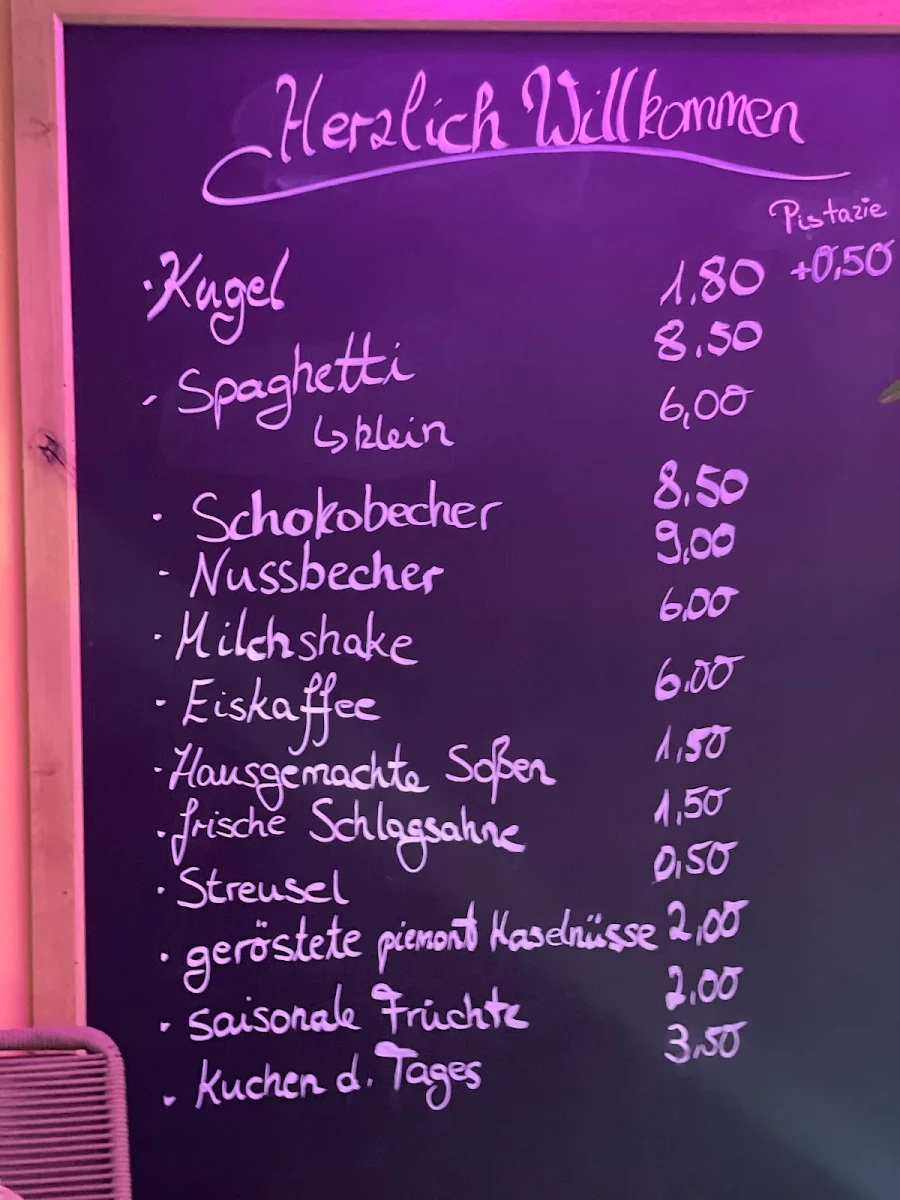 Herzlich Willkommen
Pistazie
· Kugel 1,80 +0,50
- Spaghetti 8,50
↳ klein 6,00
· Schokobecher 8,50
- Nussbecher 9,00
· Milchshake 6,00
· Eiskaffee 6,00
· Hausgemachte Soßen 1,50
· frische Schlagsahne 1,50
· Streusel 0,50
· geröstete piemont Haselnüsse 2,00
· saisonale Früchte 2,00
· Kuchen d. Tages 3,50